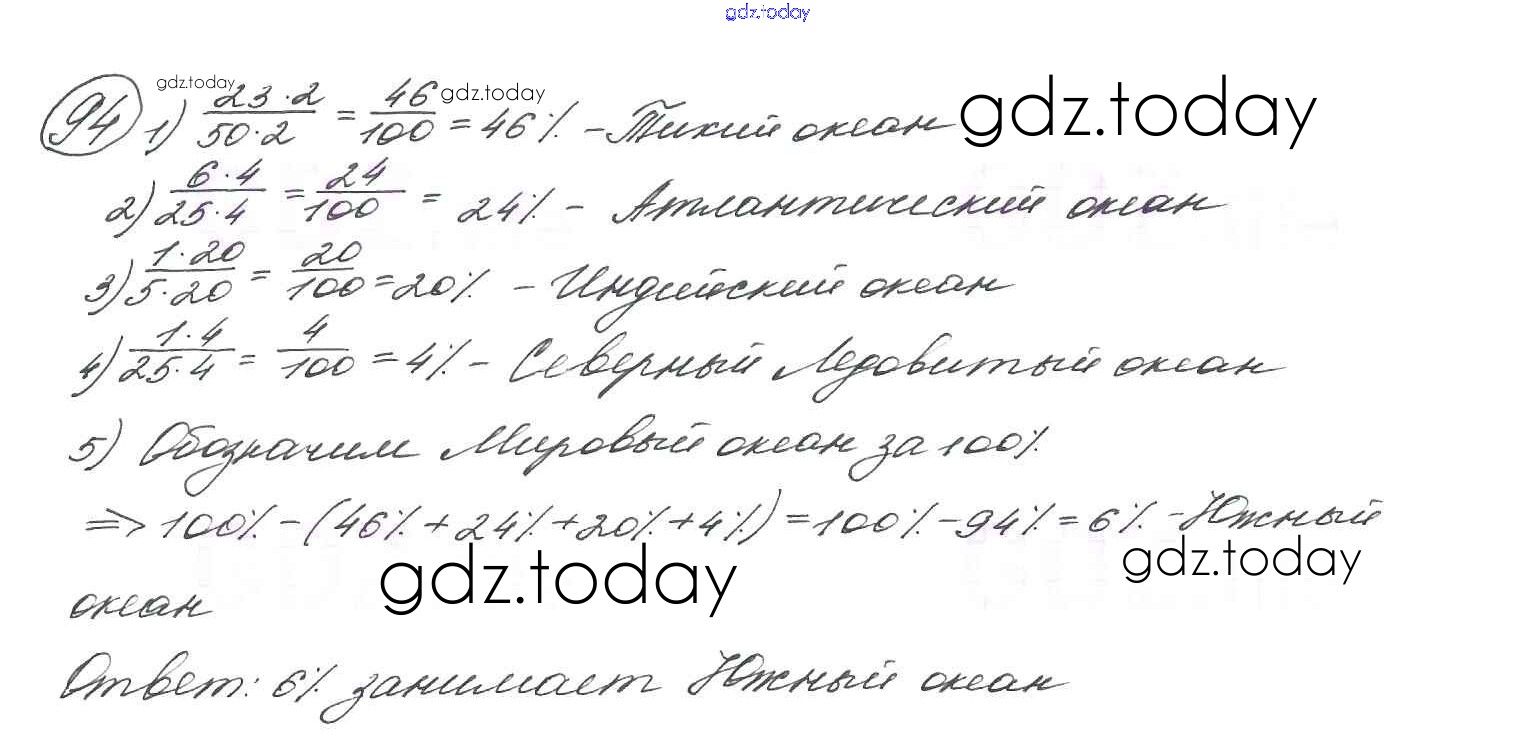 gdz.today
94 1) 23·2/50·2 = 46/100 = 46% – Тихий океан
gdz.today gdz.today gdz.today
2) 6·4/25·4 = 24/100 = 24% – Атлантический океан
3) 1·20/5·20 = 20/100 = 20% – Индийский океан
4) 1·4/25·4 = 4/100 = 4% – Северный Ледовитый океан
5) Обозначим Мировый океан за 100%
=> 100% – (46% + 24% + 20% + 4%) = 100% – 94% = 6% – Южный
gdz.today gdz.today
океан
Ответ: 6% занимает Южный океан